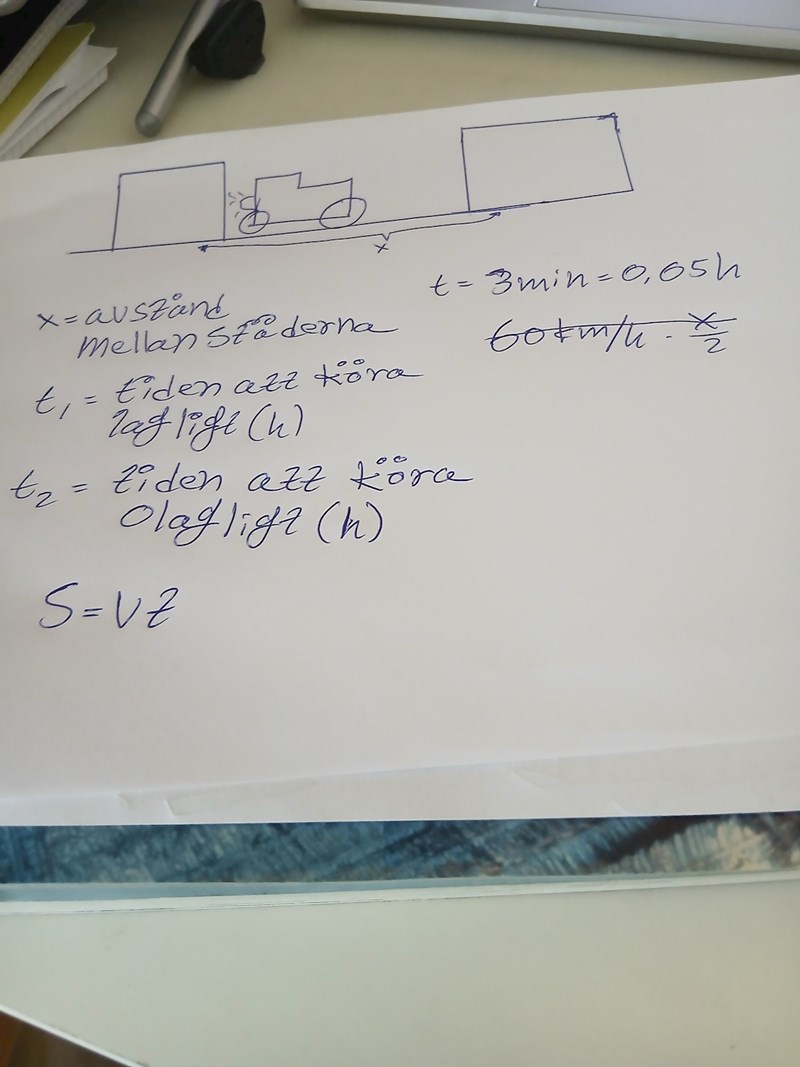 x
t = 3min = 0,05h
x = avstånd
mellan städerna
60km/h · x/2
t₁ = tiden att köra
lagligt (h)
t₂ = tiden att köra
Olagligt (h)
S = vt